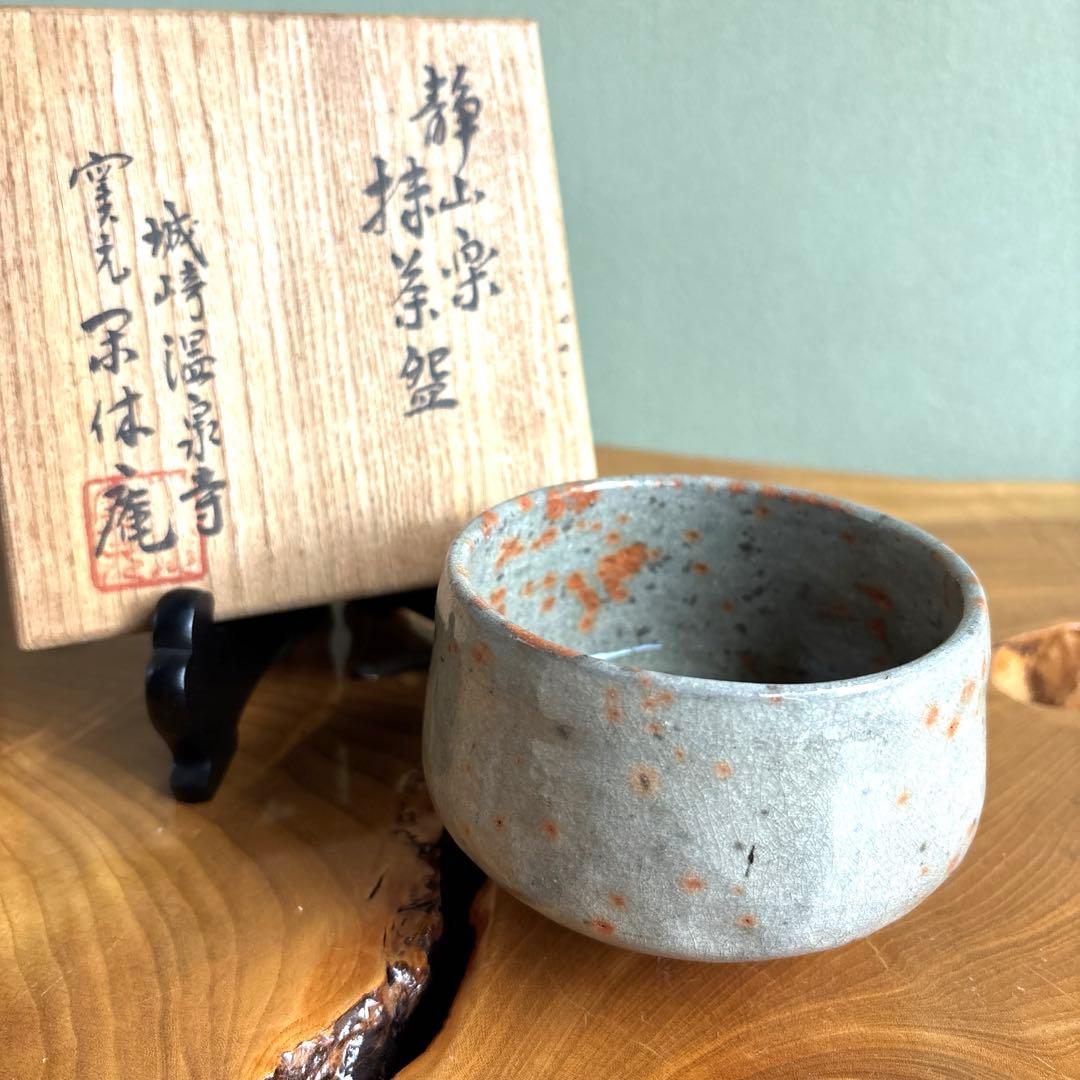 静山楽
抹茶盌
城崎温泉寺
窯元 閑休庵